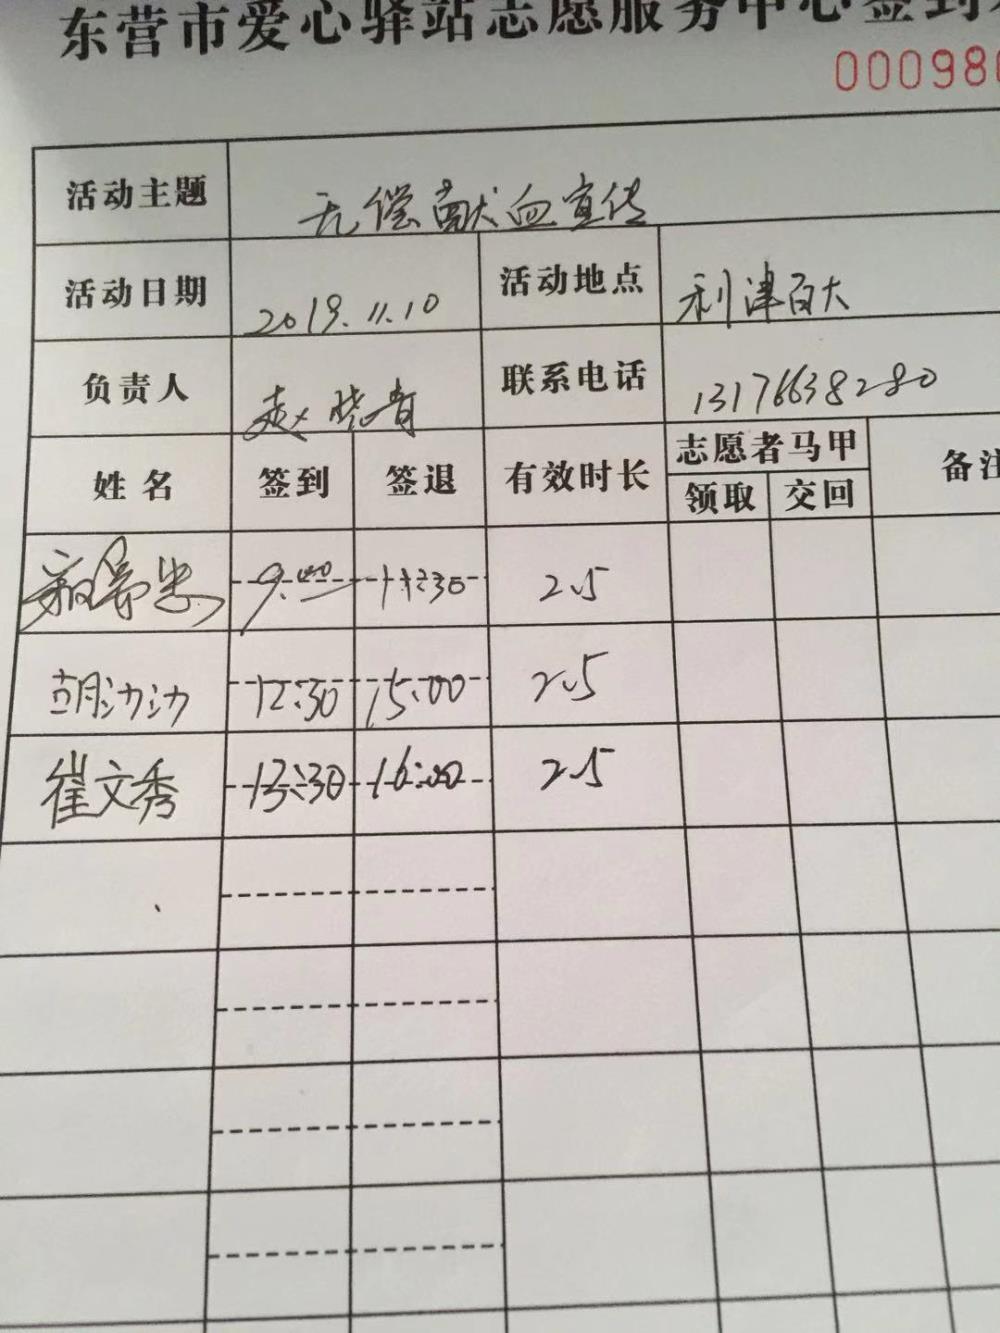 东营市爱心驿站志愿服务中心签到
00098
活动主题 无偿献血宣传
活动日期 2019.11.10 活动地点 利津百大
负责人 赵晓青 联系电话 13176638280
姓名 签到 签退 有效时长 志愿者马甲 备注
领取 交回
9:00 11:30 2.5
胡沙沙 12:30 15:00 2.5
崔文秀 13:30 16:00 2.5